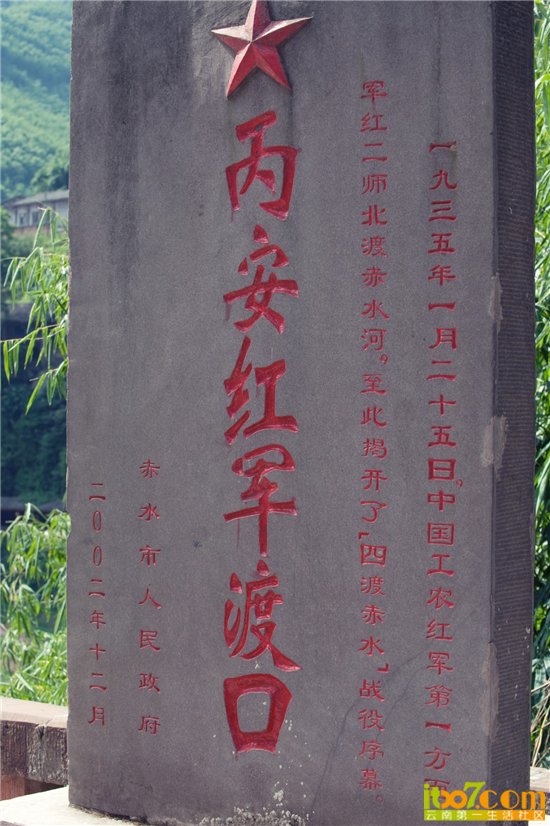 一九三五年一月二十五日，中国工农红军第一方面
军红二师北渡赤水河，至此揭开了「四渡赤水」战役序幕。
丙安红军渡口
赤水市人民政府
二〇〇二年十二月
云南第一生活社区